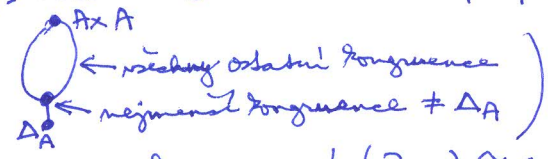 A×A
← všechny ostatní kongruence
← nejmenší kongruence ≠ Δ_A
Δ_A